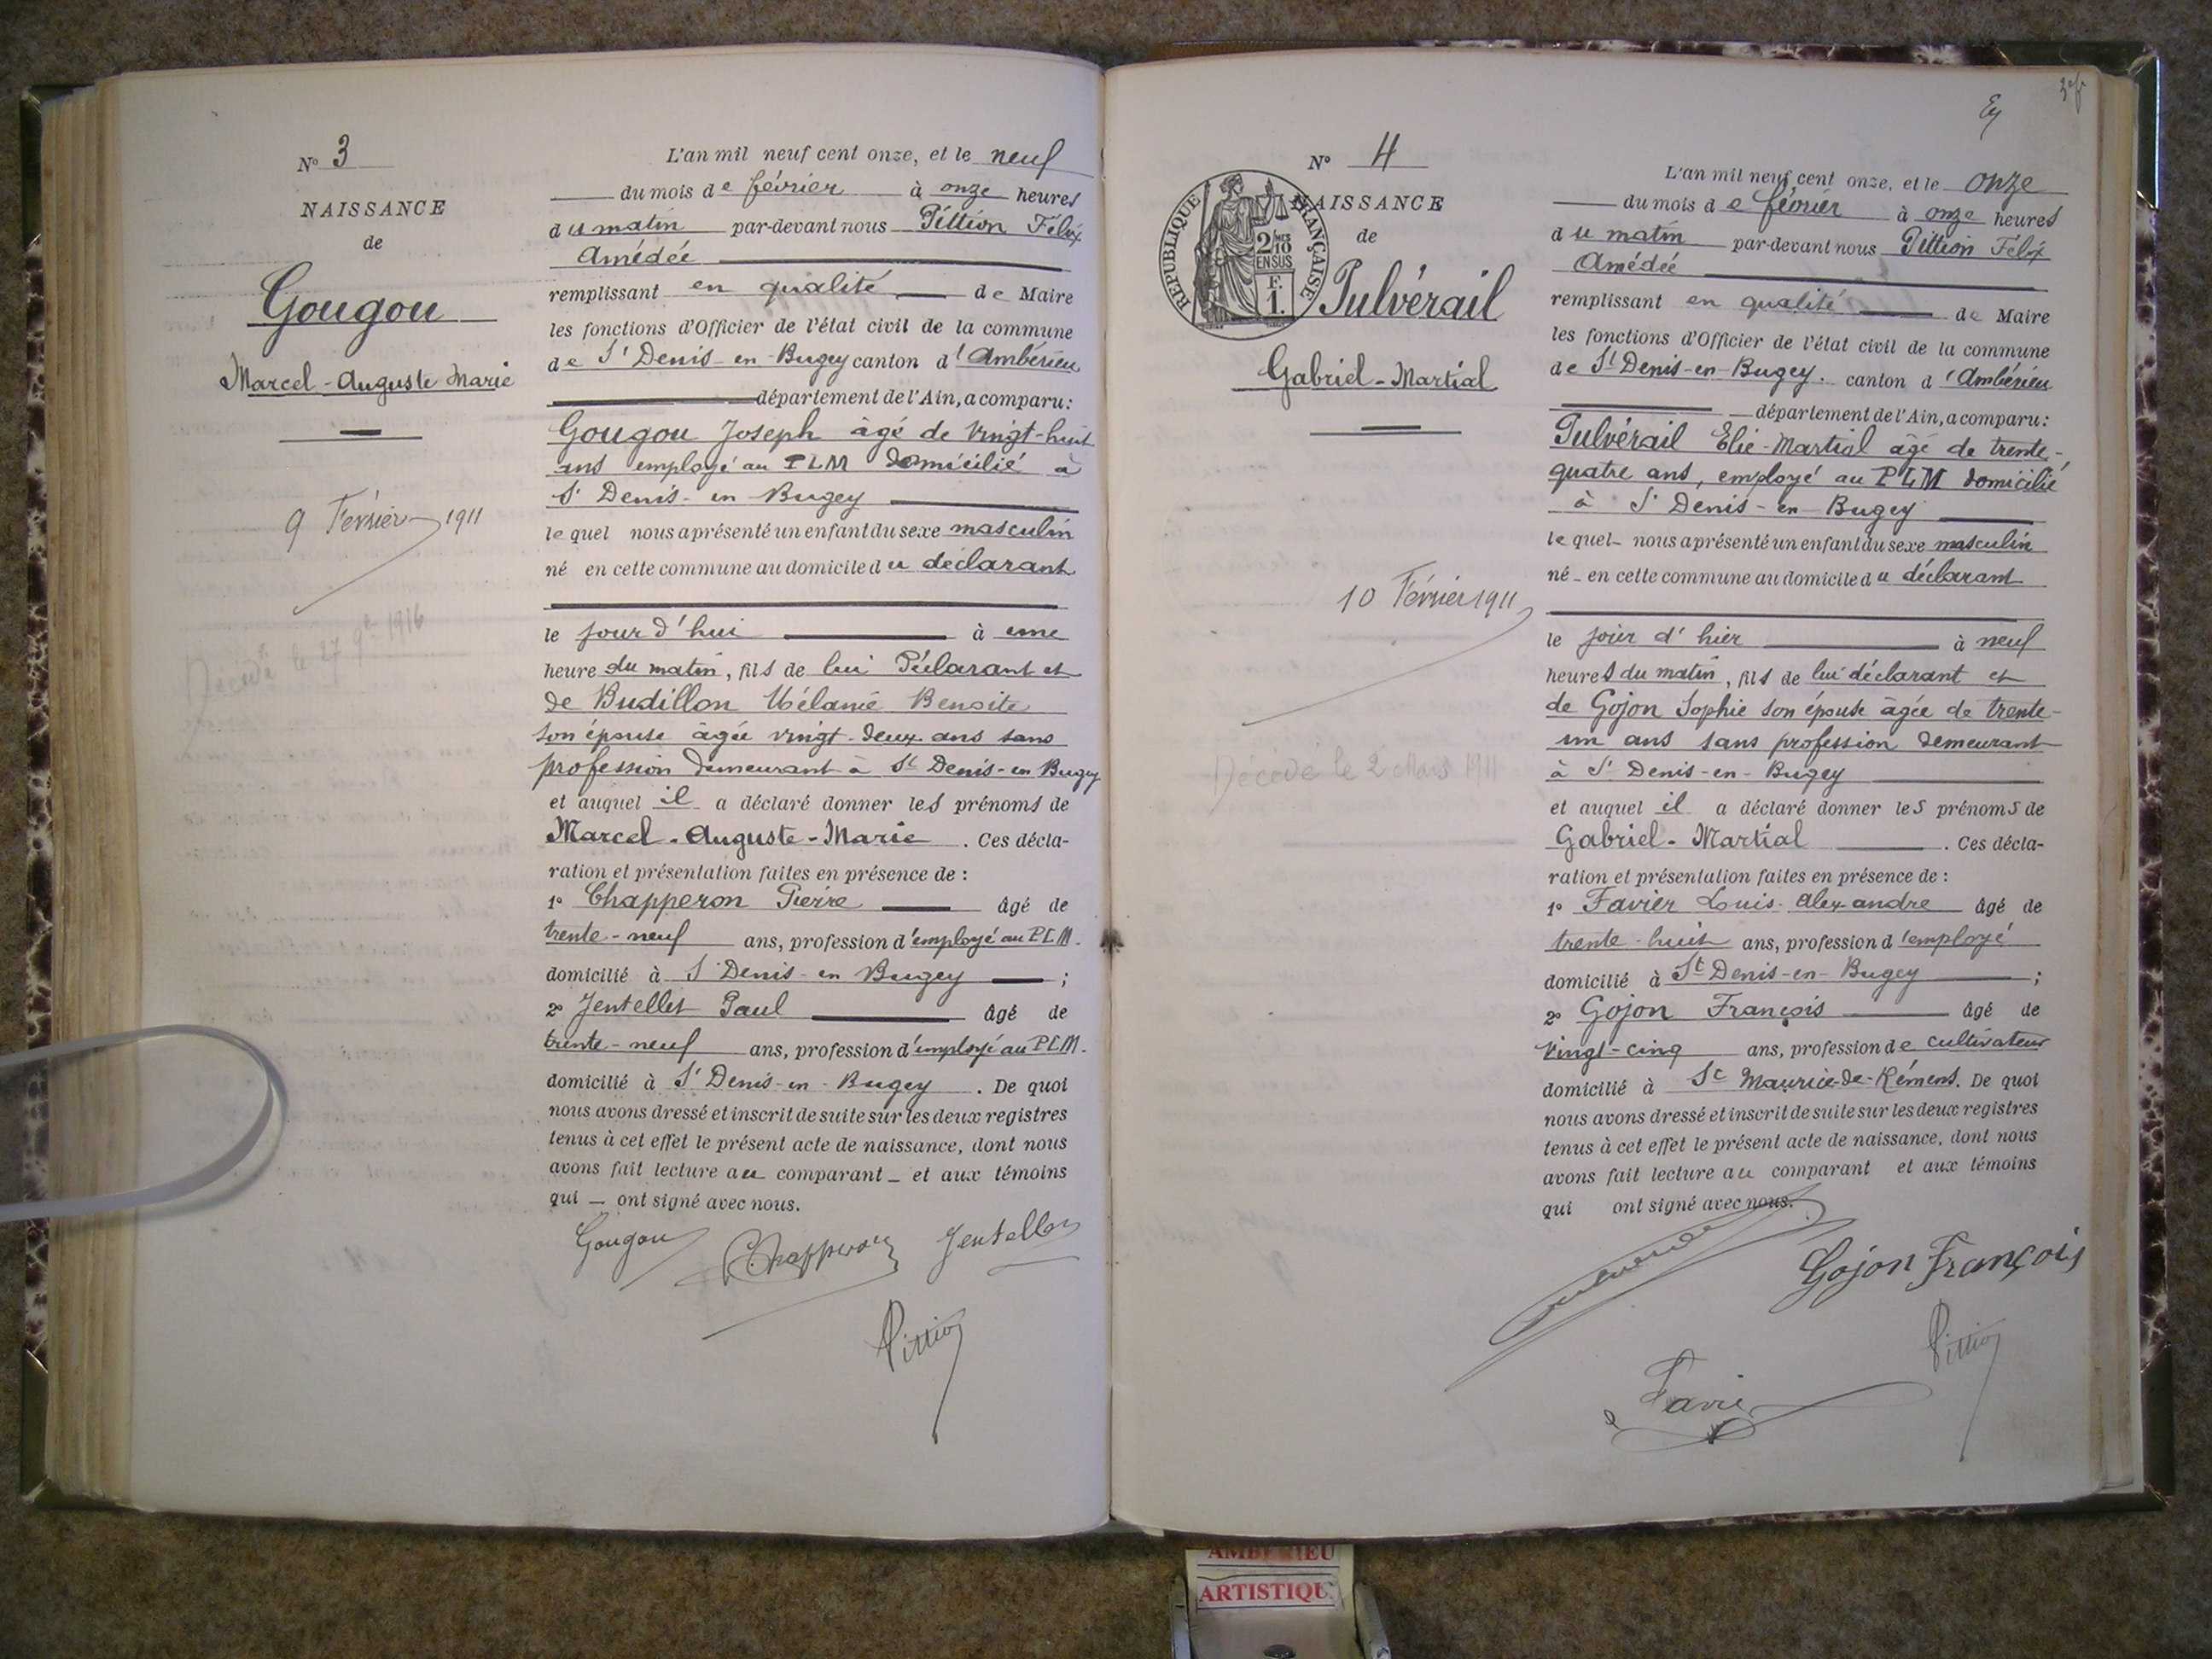 N° 3
NAISSANCE
de
Gougou
Marcel-Auguste Marie
9 Février 1911
Décédé le 27 9bre 1916
L'an mil neuf cent onze, et le neuf
du mois de février à onze heures
du matin par-devant nous Pittion Félix
Amédée
remplissant en qualité de Maire
les fonctions d'Officier de l'état civil de la commune
de St Denis-en-Bugey canton d'Ambérieu
département de l'Ain, a comparu:
Gougou Joseph âgé de vingt-huit
ans employé au PLM domicilié à
St Denis-en-Bugey
lequel nous a présenté un enfant du sexe masculin
né en cette commune au domicile du déclarant
le jour d'hui à une
heure du matin, fils de lui Déclarant et
de Budillon Mélanie Benoite
son épouse âgée vingt-deux ans sans
profession demeurant à St Denis-en Bugey
et auquel il a déclaré donner les prénoms de
Marcel-Auguste-Marie. Ces décla-
ration et présentation faites en présence de :
1° Chapperon Pierre âgé de
trente-neuf ans, profession d'employé au PLM.
domicilié à St Denis-en Bugey ;
2° Jentellet Paul âgé de
trente-neuf ans, profession d'employé au PLM.
domicilié à St Denis-en-Bugey. De quoi
nous avons dressé et inscrit de suite sur les deux registres
tenus à cet effet le présent acte de naissance, dont nous
avons fait lecture au comparant et aux témoins
qui ont signé avec nous.
Gougou Chapperon Jentellet
Pittion
N° 4
RÉPUBLIQUE FRANÇAISE
2/10MES
EN SUS
F.
1.
NAISSANCE
de
Pulvérail
Gabriel-Martial
10 Février 1911
Décédé le 2 Mars 1911
L'an mil neuf cent onze, et le onze
du mois de février à onze heures
du matin par-devant nous Pittion Félix
Amédée
remplissant en qualité de Maire
les fonctions d'Officier de l'état civil de la commune
de St Denis-en-Bugey. canton d'Ambérieu
département de l'Ain, a comparu:
Pulvérail Elie-Martial âgé de trente-
quatre ans, employé au PLM domicilié
à St Denis-en-Bugey
lequel nous a présenté un enfant du sexe masculin
né en cette commune au domicile du déclarant
le jour d'hier à neuf
heures du matin, fils de lui déclarant et
de Gojon Sophie son épouse âgée de trente-
un ans sans profession demeurant
à St Denis-en-Bugey
et auquel il a déclaré donner les prénoms de
Gabriel-Martial. Ces décla-
ration et présentation faites en présence de :
1° Favier Louis-Alexandre âgé de
trente-huit ans, profession d'employé
domicilié à St Denis-en-Bugey ;
2° Gojon François âgé de
vingt-cinq ans, profession de cultivateur
domicilié à St Maurice-de-Rémens. De quoi
nous avons dressé et inscrit de suite sur les deux registres
tenus à cet effet le présent acte de naissance, dont nous
avons fait lecture au comparant et aux témoins
qui ont signé avec nous.
Gojon François
Pittion
Favier
AMBERIEU
ARTISTIQU